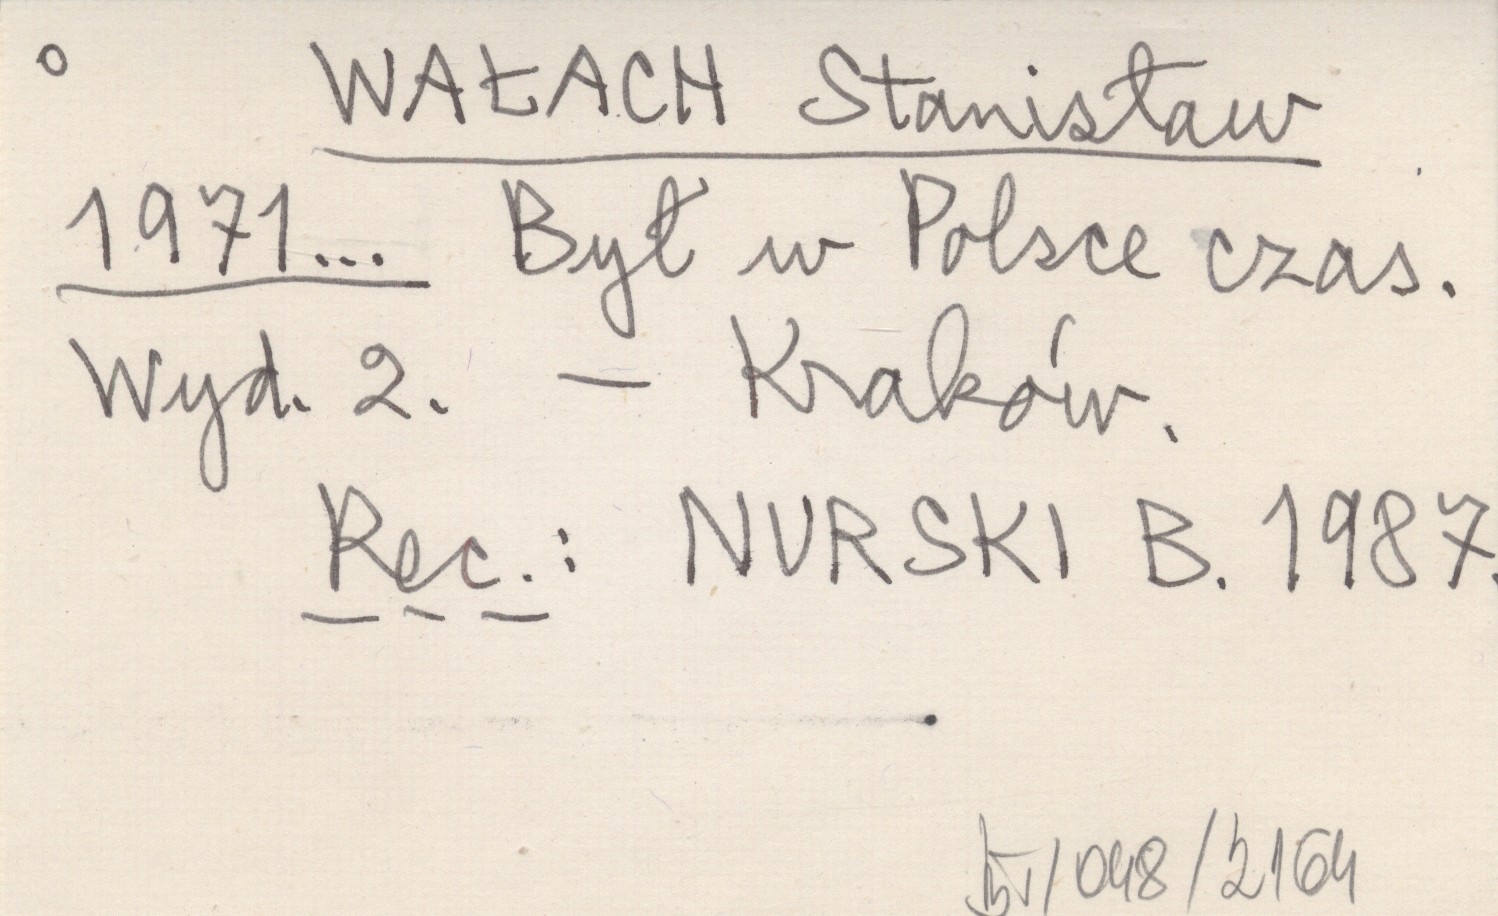 o WAŁACH Stanisław
1971... Był w Polsce czas.
Wyd. 2. – Kraków.
Rec.: NURSKI B. 1987.
/048/2164